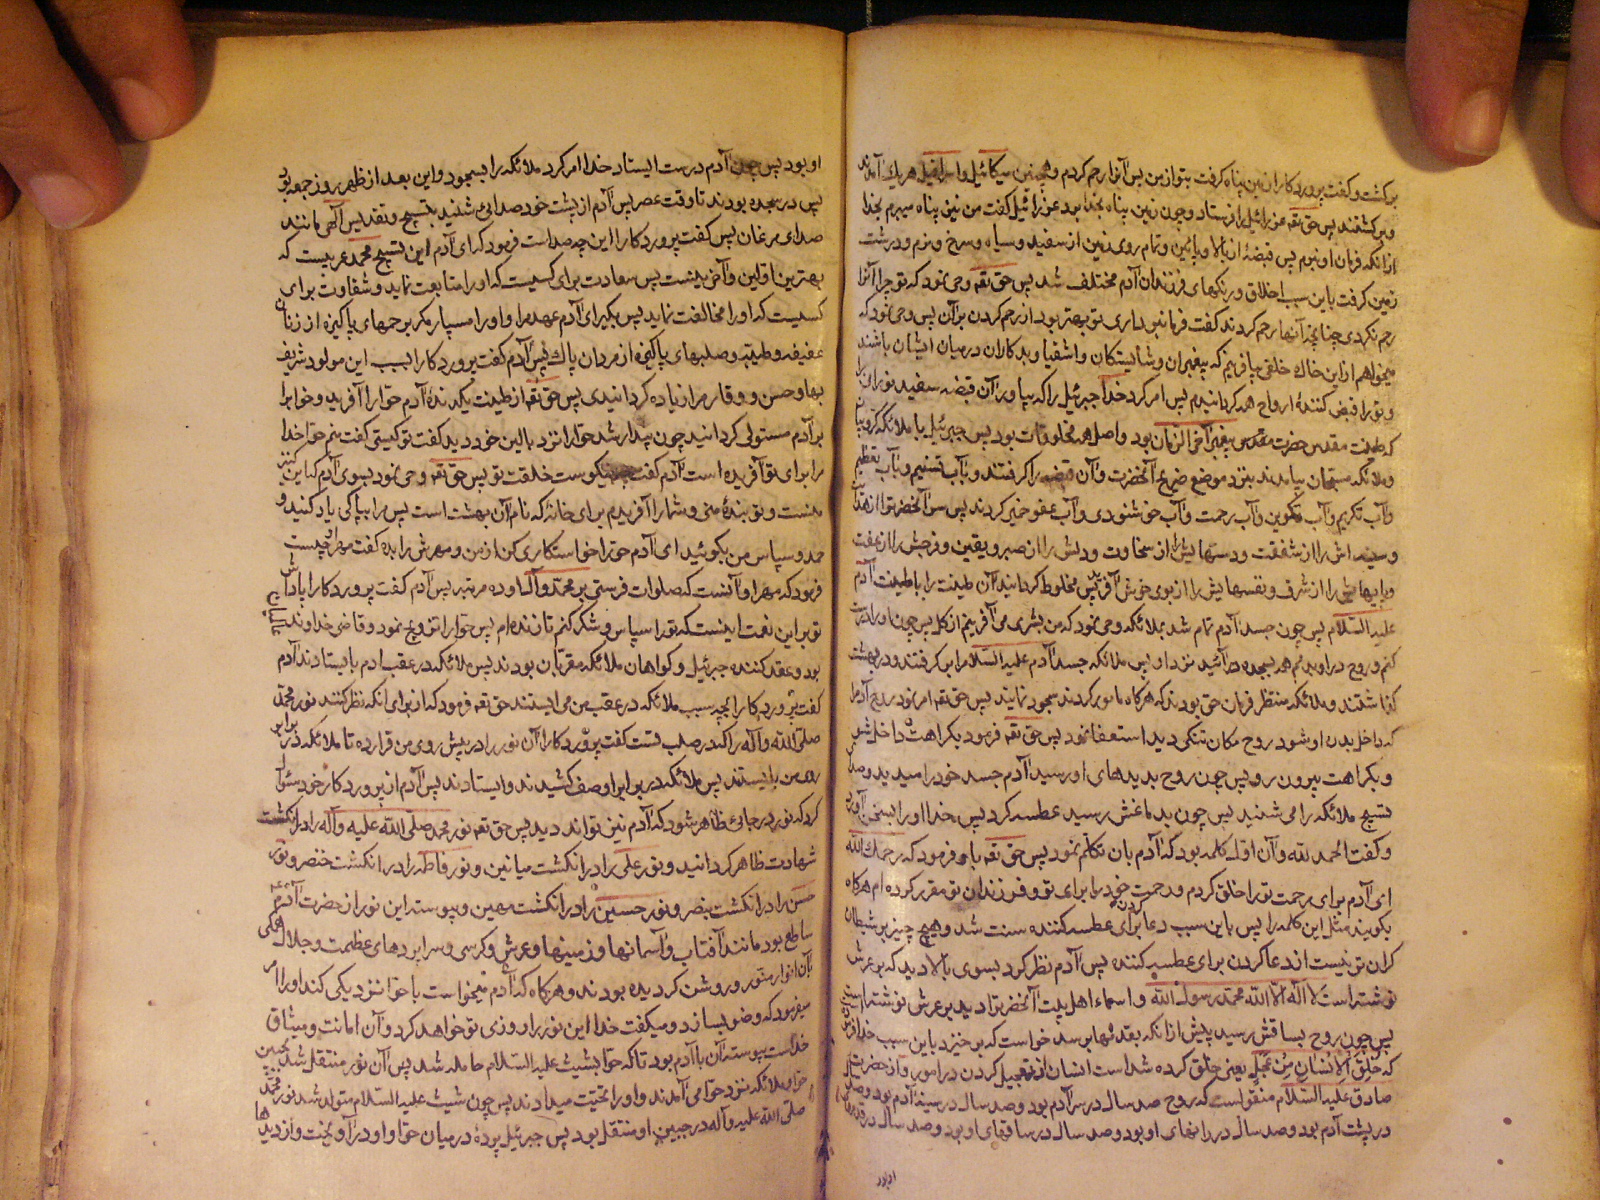 برگشت و گفت پروردگارا زمین پناه گرفت بتو از من پس آنرا رحم کردم و همچنین میکائیل و اسرافیل هر یک آمدند
و برگشتند پس حق تعه عزرائیل را فرستاد و چون زمین پناه بخدا برد عزرائیل گفت من نیز پناه میبرم بخدا
از آنکه فرمان او نبرم پس قبضهٔ از بالا و پائین و تمام روی زمین از سفید و سیاه و سرخ و نرم و درشت
زمین گرفت باین سبب اخلاق و رنگهای فرزندان آدم مختلف شد پس حق تعه وحی نمود که تو چرا آنرا
رحم نکردی چنانچه آنها رحم کردند گفت فرمانبرداری تو بهتر بود از رحم کردن بر آن پس وحی نمود که
میخواهم از این خاک خلقی بیافرینم که پیغمبران و شایستگان و اشقیا و بدکاران در میان ایشان باشند
و تو را قبض کنندهٔ ارواح همه گردانیدم پس امر کرد خدا جبرئیل را که بیاور آن قبضه سفید نورانی را
که طینت مقدس حضرت مقدس پیغمبر آخر الزمان بود و اصل همه مخلوقات بود پس جبرئیل با ملائکه کروبیان
و ملائکه مسبحان بیامدند بنزد موضع ضریح آنحضرت و آن قبضه را گرفتند و بآب تسنیم و بآب تعظیم
و آب تکریم و آب تکوین و آب رحمت و آب خوشنودی و آب عفو خمیر کردند پس سر آنحضرت را از هدایت
و سینه اش را از شفقت و دستهایش را از سخاوت و دلش را از صبر و یقین و فرجش را از عفت
و پایهایش را از شرف و نفسهایش را از بوی خوش آفرید پس مخلوط گردانید آن طینت را با طینت آدم
علیه السلام پس چون جسد آدم تمام شد بملائکه وحی نمود که من بشری می آفرینم از گل پس چون او را درست
کنم و روح در او بدمم همه بسجده در آئید نزد او پس ملائکه جسد آدم علیه السلام را برگرفتند و در بهشت
گذاشتند و ملائکه منتظر فرمان حق بودند که هرگاه مامور گردند سجود نمایند پس حق تعه امر نمود روح آدم را
که داخل بدن او شود روح مکان تنگی دید استعفا نمود پس حق تعه فرمود بکراهت داخل شو
و بکراهت بیرون رو پس چون روح بدیدهای او رسید آدم جسد خود را میدید و صدای
تسبیح ملائکه را می شنید پس چون بدماغش رسید عطسه کرد پس خدا او را بسخن آورد
و گفت الحمد لله و آن اول کلمه بود که آدم بآن تکلم نمود پس حق تعه باو فرمود که رحمک الله
ای آدم برای رحمت تو را خلق کردم و رحمت خود را برای تو و فرزندان تو مقرر کرده ام هرگاه
بگویند مثل این کلمه را پس باین سبب دعا کردن برای عطسه کننده سنت شد و هیچ چیز بر شیطان
گران تر نیست از دعا کردن برای عطسه کننده پس آدم نظر کرد بسوی بالا دید که بر عرش
نوشته است لا اله الا الله محمد رسول الله و اسماء اهل بیت آنحضرت را دید بر عرش نوشته است
پس چون روح بساقش رسید پیش از آنکه بقدمها برسد خواست که برخیزد باین سبب خدا فرمود
که خلق الانسان من عجل یعنی خلق کرده شده است انسان از تعجیل کردن در امور و از حضرت
صادق علیه السلام منقول است که روح صد سال در سر آدم بود و صد سال در سینهٔ آدم بود و صد سال
در پشت آدم بود و صد سال در رانهای او بود و صد سال در ساقهای او بود و صد سال در قدمهای
او بود
او بود پس چون آدم درست ایستاد خدا امر کرد ملائکه را بسجود و این بعد از ظهر روز جمعه بود
پس در سجده بودند تا وقت عصر پس آدم از پشت خود صدائی شنید بتسبیح و تقدیس الهی مانند
صدای مرغان پس گفت پروردگارا این چه صداست فرمود که ای آدم این تسبیح محمد عربیست که
بهترین اولین و آخرینست پس سعادت برای کسیست که او را متابعت نماید و شقاوت برای
کسیست که او را مخالفت نماید پس بگیر ای آدم عهد مرا و او را مسپار مگر برحمهای پاکیزه از زنان
عفیفه و طیبه و صلبهای پاکیزه از مردان پاک پس آدم گفت پروردگارا بسبب این مولود شریف
بها و حسن و وقار مرا زیاده گردانیدی پس حق تعه از طینت یکدندهٔ آدم حوا را آفرید و خواب را
بر آدم مستولی گردانید چون بیدار شد حوا را نزد بالین خود دید گفت تو کیستی گفت منم حوا خدا
را برای تو آفریده است آدم گفت چه نیکوست خلقت تو پس حق تعه وحی نمود بسوی آدم که این کنیز
منست و تو بندهٔ منی و شما را آفریدم برای خانهٔ که نام آن بهشت است پس مرا بپاکی یاد کنید و
حمد و سپاس من بگوئید ای آدم حوا را خواستگاری کن از من و مهرش را بده گفت مهر او چیست
فرمود که مهر او آنست که صلوات فرستی بر محمد و آل او ده مرتبه پس آدم گفت پروردگارا پاداش
تو بر این نعمت اینست که تو را سپاس و شکر کنم تا زنده ام پس حوا را تزویج نمود و قاضی خداوند
بود و عقد کننده جبرئیل و گواهان ملائکه مقربان بودند پس ملائکه در عقب آدم بایستادند آدم
گفت پروردگارا بچه سبب ملائکه در عقب من می ایستند حق تعه فرمود که از برای آنکه نظر کنند نور محمد
صلی الله و آله را که در صلب تست گفت پروردگارا آن نور را در پیش روی من قرار ده تا ملائکه در برابر
روی من بایستند پس ملائکه در برابر او صف کشیدند و ایستادند پس آدم از پروردگار خود سئوال
کرد که نور در جائی ظاهر شود که آدم نیز تواند دید پس حق تعه نور محمد صلی الله علیه و آله را در انگشت
شهادت ظاهر گردانید و نور علی را در انگشت میانین و نور فاطمه را در انگشت خنصر و نور
حسن را در انگشت بنصر و نور حسین را در انگشت مهین و پیوسته این نور از حضرت آدم
ساطع بود مانند آفتاب و آسمانها و زمینها و عرش و کرسی و سرابردهای عظمت و جلال همگی
بآن انوار منور و روشن گردیده بودند و هرگاه که آدم میخواست با حوا نزدیکی کند او را امر
میفرمود که وضو بسازد و میگفت خدا این نور را روزی تو خواهد کرد و آن امانت و میثاق
خداست پیوسته آن با آدم بود تا که حوا بشیث علیه السلام حامله شد پس آن نور منتقل شد بجبین
حوا و ملائکه نزد حوا می آمدند و او را تحیت میدادند پس چون شیث علیه السلام متولد شد نور محمد
صلی الله علیه و آله در جبین او منتقل بود پس جبرئیل پردهٔ در میان حوا و او در آویخت و از دیدها